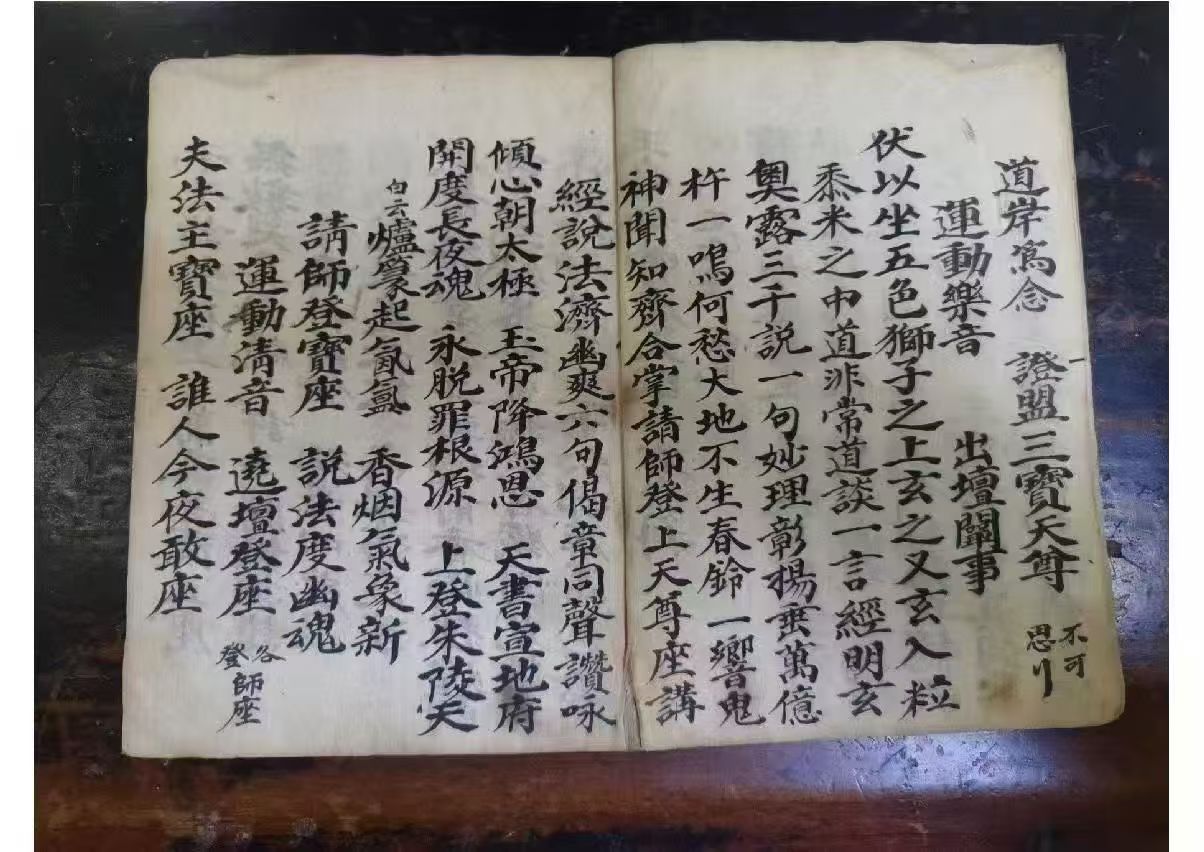 道岸為念 證盟三寶天尊 不可思刂
運動樂音 出壇闈事
伏以坐五色獅子之上玄之又玄入粒
黍米之中道非常道談一言經明玄
奧露三千說一句妙理彰揚垂萬億
杵一鳴何愁大地不生春鈴一響鬼
神聞知齊合掌請師登上天尊座講
經說法濟幽爽六句偈章同聲讚咏
傾心朝太極 玉帝降鴻恩 天書宣地府
開度長夜魂 永脱罪根源 上登朱陵天
白云 爐篆起氤氳 香烟氣象新
請師登寶座 説法度幽魂
運動清音 遶壇登座 各登師座
夫法主寶座 誰人今夜敢座